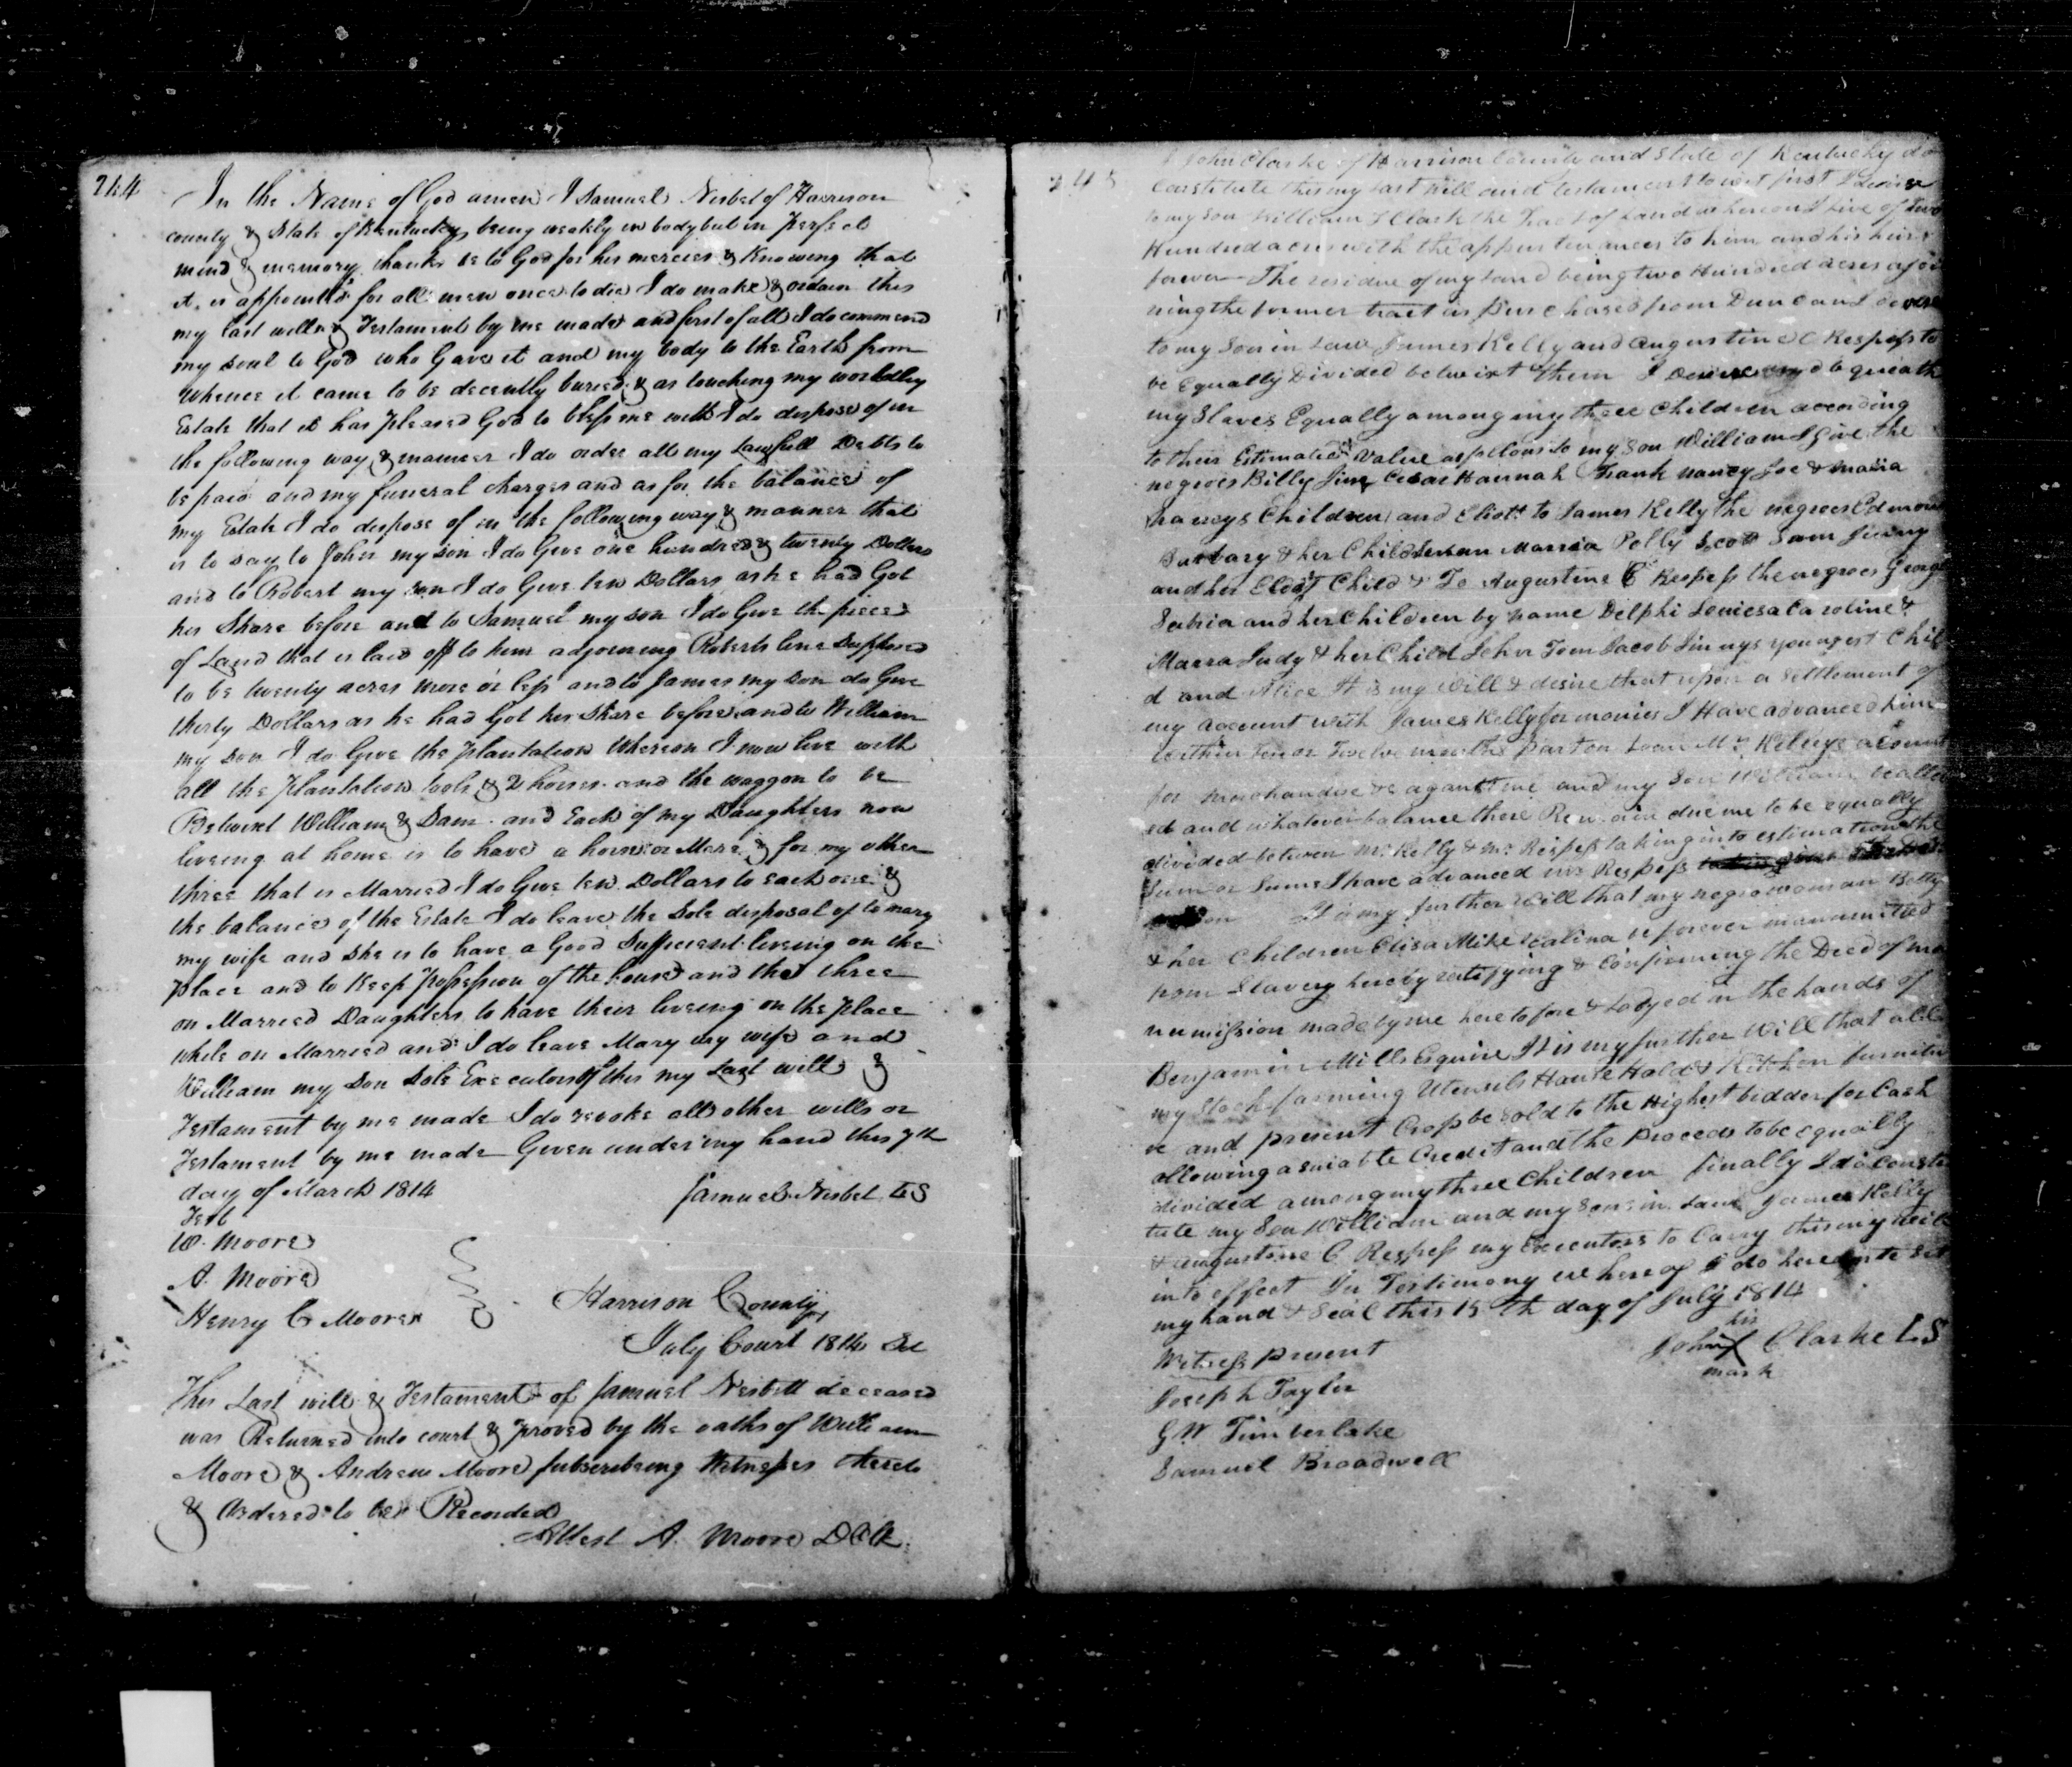 244
In the Name of God amen I Samuel Nesbet of Harrison
county & State of Kentucky being weakly in body but in Perfect
mind & memory thanks be to God for his mercies & Knowing that
it is appointed for all men once to die I do make & ordain this
my last will & Testament by me made and first of all I do commend
my soul to God who Gave it and my body to the Earth from
whence it came to be decently buried & as touching my worldley
Estate that it has pleased God to bless me with I do dispose of in
the following way & manner I do order all my Lawfull Debts to
be paid and my funeral charges and as for the balance of
my Estate I do dispose of in the following way & manner that
is to say to John my son I do Give one hundred & twenty Dollars
and to Robert my son I do Give ten Dollars as he had Got
his Share before and to Samuel my son I do Give the piece
of Land that is laid off to him adjoining Roberts line Supposed
to be twenty acres more or less and to James my son do Give
thirty Dollars as he had Got his Share before and to William
my son I do Give the plantation Whereon I now live with
all the plantation tools & 2 horses and the waggon to be
Betwixt William & Sam and Each of my Daughters now
liveing at home is to have a horse or Mare & for my other
three that is Married I do Give ten Dollars to each one &
the balance of the Estate I do leave the Sole disposal of to mary
my wife and she is to have a Good Sufficient liveing on the
place and to Keep possession of the house and the three
on Married Daughters to have their liveing on the place
while on Married and I do leave Mary my wife and
William my Son Sole Executors of this my Last will &
Testament by me made I do revoke all other wills or
Testament by me made Given under my hand this 7th
day of March 1814 Samuel Nesbet LS
Test
W. Moore
A. Moore
Henry C Moore
Harrison County
July Court 1814 Sct
This Last will & Testament of Samuel Nesbett deceased
was Returned into court & proved by the oaths of William
Moore & Andrew Moore subscribeing Witnesses thereto
& Ordered to be Recorded
Attest A. Moore DClk
245
I John Clarke of Harrison County and State of Kentucky do
Constitute this my last will and testament to wit first I devise
to my son William Clark the Tract of Land whereon I live of Two
Hundred acres with the appurtenances to him and his heirs
forever The residue of my land being two Hundred acres ajoi
ning the former tract as Purchased from Duncan I devise
to my Son in Law James Kelly and Augustine C Respess to
be Equally Divided betwixt them I Devise and bequeath
my Slaves Equally among my three Children according
to their Estimated Value as follows to my Son William I Give the
negroes Billy Jim Cesar Hannah Frank Nancy Joe & Maria
Nancys Children and Eliott to James Kelly the negroes Edmond
Barbary & her Children Marria Polly Scott Sam Jinny
and her Eldest Child & To Augustine C Respess the negroes George
Sabria and her Children by name Delphi Louiesa Caroline &
Marra Judy & her Child John Tom Jacob Jinnys youngest Chil
d and Alice It is my Will & desire that upon a Settlement of
my account with James Kelly for monies I Have advanced him
within Ten or Twelve months past on Loan Mr. Kellys account
for Merchandise &c against me and my Son William be allow
ed and whatever balance there Remain due me to be equally
divided between Mr Kelly & Mr. Respess taking into estimation the
Sum or Sums I have advanced Mr Respess
It is my further Will that my negro woman Betty
& her Children Elisa Mike & Calina be forever manumitted
from Slavery hereby ratifying & Confirming the Deed of ma
numission made by me heretofore & Lodged in the hands of
Benjamin Mills Esquire It is my further Will that all
my Stock farming Utensils House Hold & Kitchen furnitu
re and present Crops be Sold to the Highest bidder for Cash
allowing a suiable Credit and the proceeds to be equally
divided among my three Children finally I do Consti
tute my Son William and my Sons in Law James Kelly
& Augustine C. Respess my Executors to Carry this my Will
into effect In Testimony whereof I do hereunto set
my hand & Seal this 15th day of July 1814
his
John X Clarke LS
mark
Witness present
Joseph Taylor
G. W Timberlake
Samuel Broadwell